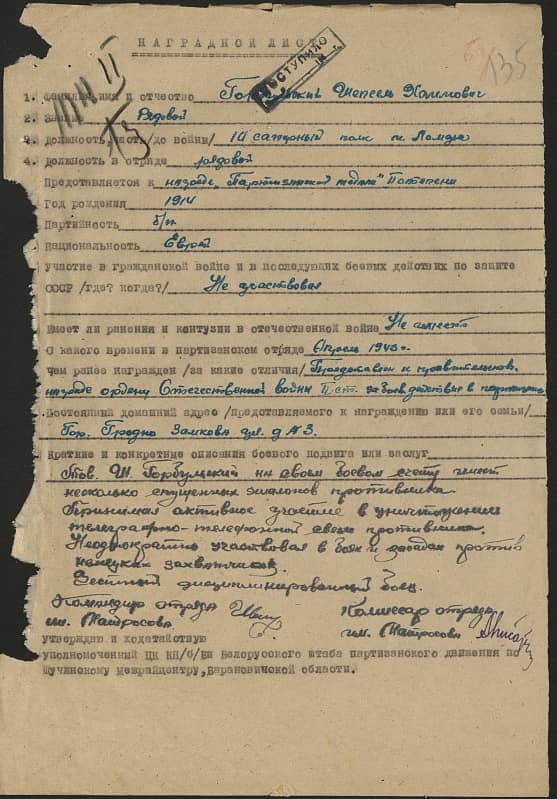 НАГРАДНОЙ ЛИСТ
ПОСТУПИЛО
135
1. Фамилия имя и отчество Горбульский Шепсель Хаимович
2. Звание Рядовой
3. Должность, часть /до войны/ 14 саперный полк г. Ломжа
4. Должность в отряде рядовой
Представляется к награде "Партизанской медали" II степени
Год рождения 1914
Партийность б/п
Национальность Еврей
Участие в гражданской войне и в последующих боевых действиях по защите
СССР /где? когда?/ Не участвовал
Имеет ли ранения и контузии в отечественной войне Не имеет
С какого времени в партизанском отряде Апрель 1943 г.
Чем ранее награжден /за какие отличия/ Представлен к правительств.
награде ордену Отечественной войны II ст. за боев. действия в
Постоянный домашний адрес /представляемого к награждению или его семьи/
Гор. Гродно Замкова ул. д №3.
Краткие и конкретные описания боевого подвига или заслуг
Тов. Ш. Горбульский на своем боевом счету имеет
несколько спущенных эшелонов противника.
Принимал активное участие в уничтожении
телеграфно-телефонной связи противника.
Неоднократно участвовал в боях и засадах против
немецких захватчиков.
Честный дисциплинированный боец.
Командир отряда
им. Матросова
Комиссар отряда
им. Матросова
утверждаю и ходатайствую
уполномоченный ЦК КП/б/Би Белорусского штаба партизанского движения по
Щучинскому межрайцентру, Барановичской области.